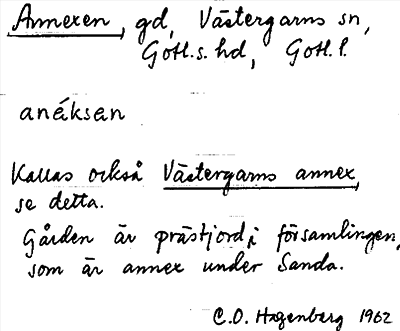 Annexen, gd, Västergarns sn,
Gotl.s. hd, Gotl. l.
anéksen
Kallas också Västergarns annex,
se detta.
Gården är prästjord i församlingen,
som är annex under Sanda.
C.O. Hagenberg 1962